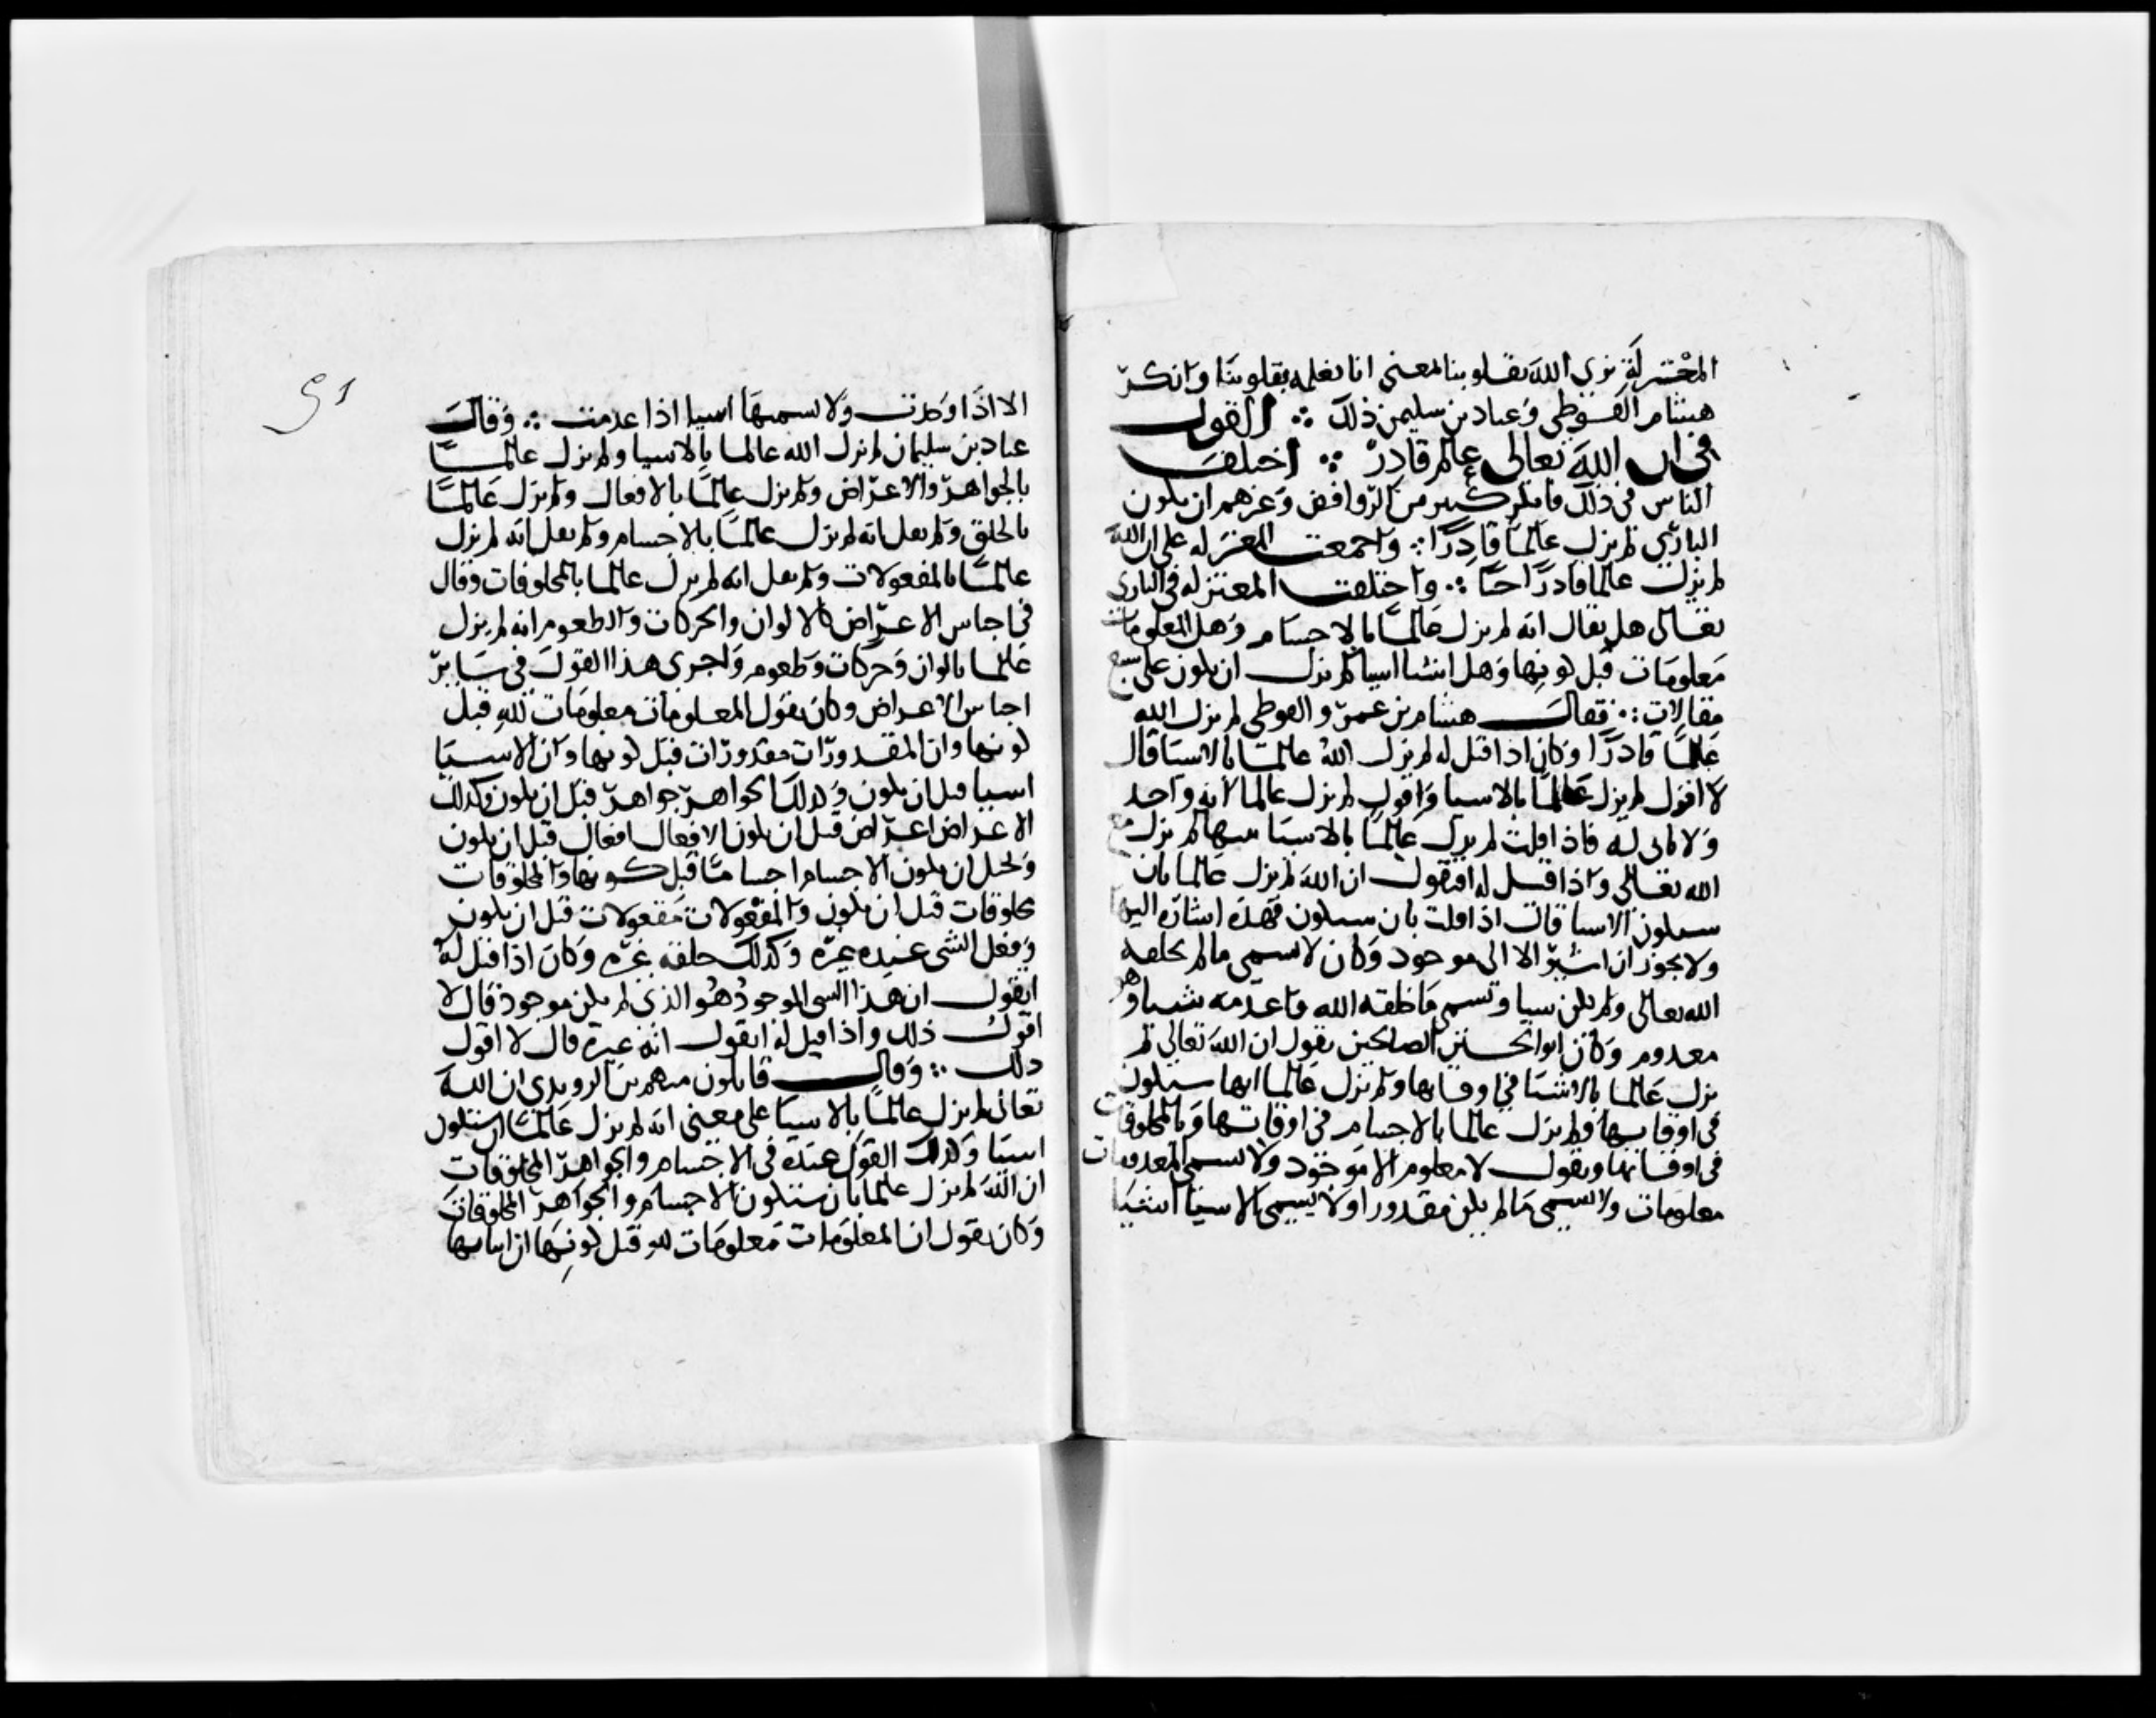 المعتزلة نرى الله بقلوبنا بمعنى انا نعلمه بقلوبنا وانكر
هشام الفوطي وعباد بن سليمن ذلك ∴ القول
في ان الله تعالى عالم قادر ∴ اختلف
الناس في ذلك فانكر كثير من الروافض وغيرهم ان يكون
الباري لم يزل عالما قادرا ∴ واجمعت المعتزله على ان الله
لم يزل عالما قادرا حيا ∴ واختلفت المعتزله في الباري
تعالى هل يقال انه لم يزل عالما بالاجسام وهل المعلومات
معلومات قبل كونها وهل الاشيا اشيا لم تزل ان تكون على سبع
مقالات ∴ فقال هشام بن عمرو الفوطي لم يزل الله
عالما قادرا وكان اذا قيل له لم يزل الله عالما بالاشيا قال
لا اقول لم يزل عالما بالاشيا واقول لم يزل عالما لانه واحد
ولا ثاني له فاذا قلت لم يزل عالما بالاشيا ثبتها لم تزل مع
الله تعالى واذا قيل له افتقول ان الله لم يزل عالما بان
ستكون الاشيا قال اذا قلت بان ستكون فهذه اشاره اليها
ولا يجوز ان اشير الا الى موجود وكان لا يسمي ما لم يخلقه
الله تعالى ولم يكن شيا ويسمي ما خلقه الله واعدمه شيا وهو
معدوم وكان ابو الحسين الصالحي يقول ان الله تعالى لم
يزل عالما بالاشيا في اوقاتها ولم يزل عالما انها ستكون
في اوقاتها ولم يزل عالما بالاجسام في اوقاتها وبالمخلوقات
في اوقاتها ويقول لا معلوم الا موجود ولا يسمي المعدومات
معلومات ولا يسمي ما لم يكن مقدورا ولا يسمي الاشيا اشيا
٥١
الا اذا وجدت ولا يسميها اشيا اذا عدمت ∴ وقال
عباد بن سليمان لم يزل الله عالما بالاشيا ولم يزل عالما
بالجواهر والاعراض ولم يزل عالما بالافعال ولم يزل عالما
بالخلق ولم يقل انه لم يزل عالما بالاجسام ولم يقل انه لم يزل
عالما بالمفعولات ولم يقل انه لم يزل عالما بالمخلوقات وقال
في اجناس الاعراض كالالوان والحركات والطعوم انه لم يزل
عالما بالوان وحركات وطعوم واجرى هذا القول في ساير
اجناس الاعراض وكان يقول المعلومات معلومات لله قبل
كونها وان المقدورات مقدورات قبل كونها وان الاشيا
اشيا قبل ان تكون وكذلك الجواهر جواهر قبل ان تكون وكذلك
الاعراض اعراض قبل ان تكون الافعال افعال قبل ان تكون
ويحيل ان تكون الاجسام اجساما قبل كونها والمخلوقات
مخلوقات قبل ان تكون والمفعولات مفعولات قبل ان تكون
وفعل الشي عنده غيره وكذلك خلقه غيره وكان اذا قيل له
اتقول ان هذا الشي الموجود هو الذي لم يكن موجود قال لا
اقول ذلك واذا قيل له اتقول انه غيره قال لا اقول
ذلك ∴ وقال قايلون منهم بن الرويدي ان الله
تعالى لم يزل عالما بالاشيا على معنى انه لم يزل عالما ان ستكون
اشيا وكذلك القول عنده في الاجسام والجواهر المخلوقات
ان الله لم يزل عالما بان ستكون الاجسام والجواهر المخلوقات
وكان يقول ان المعلومات معلومات لله قبل كونها ان اثباتها